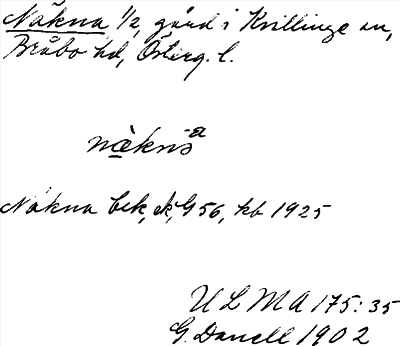 Näkna 1/2, gård i Kvillinge sn,
Bråbo hd, Österg. l.
nækna
Näkna bek, ek, G 56, kb 1925
ULMA 175:35
G. Danell 1902